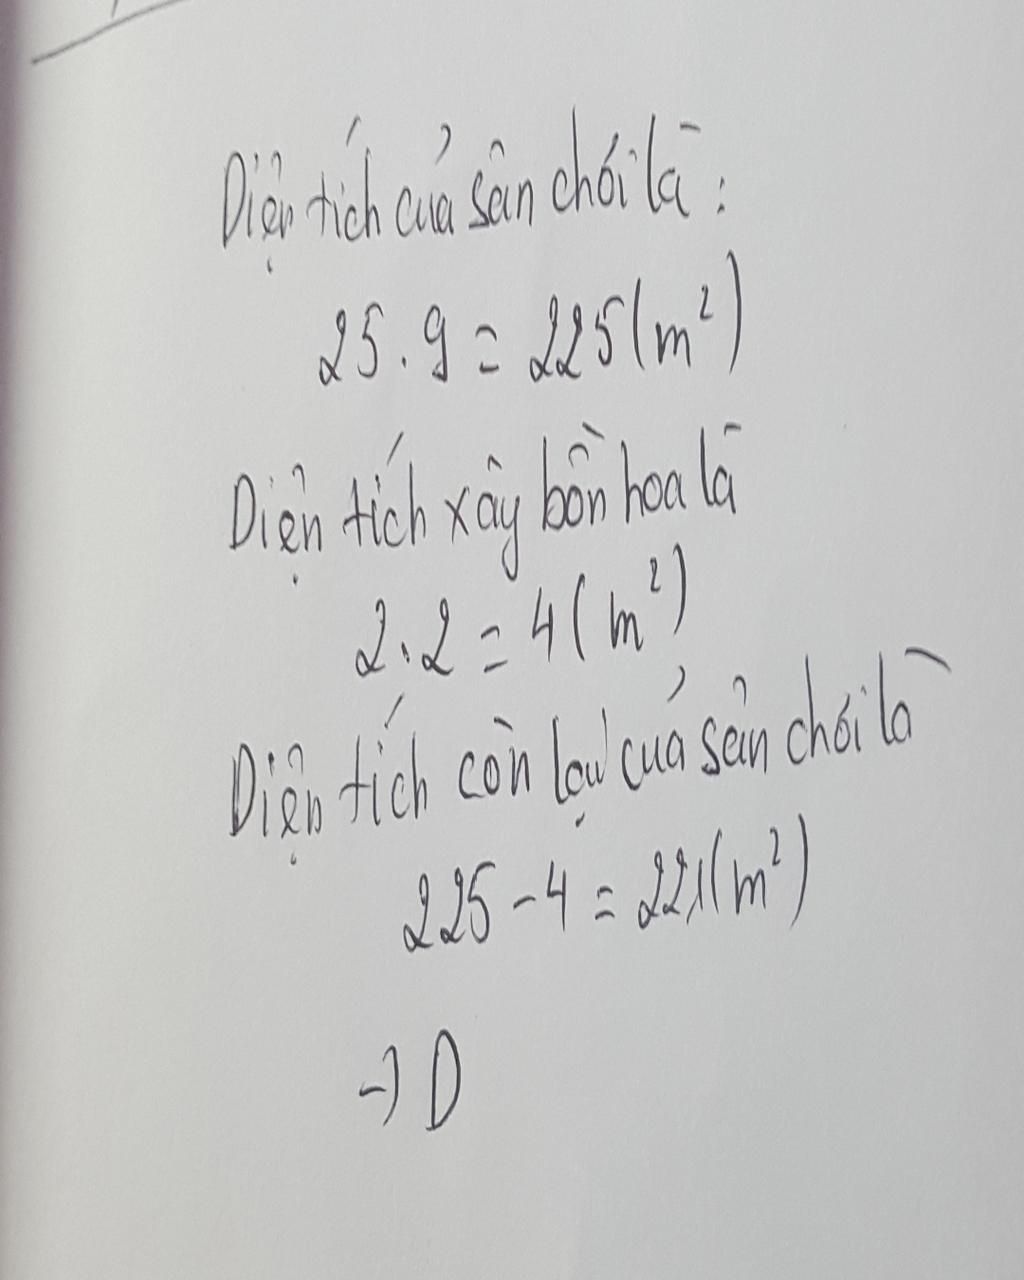 Diện tích của sân chơi là :
25 . 9 = 225 (m²)
Diện tích xây bồn hoa là
2 . 2 = 4 (m²)
Diện tích còn lại của sân chơi là
225 - 4 = 221 (m²)
→ D